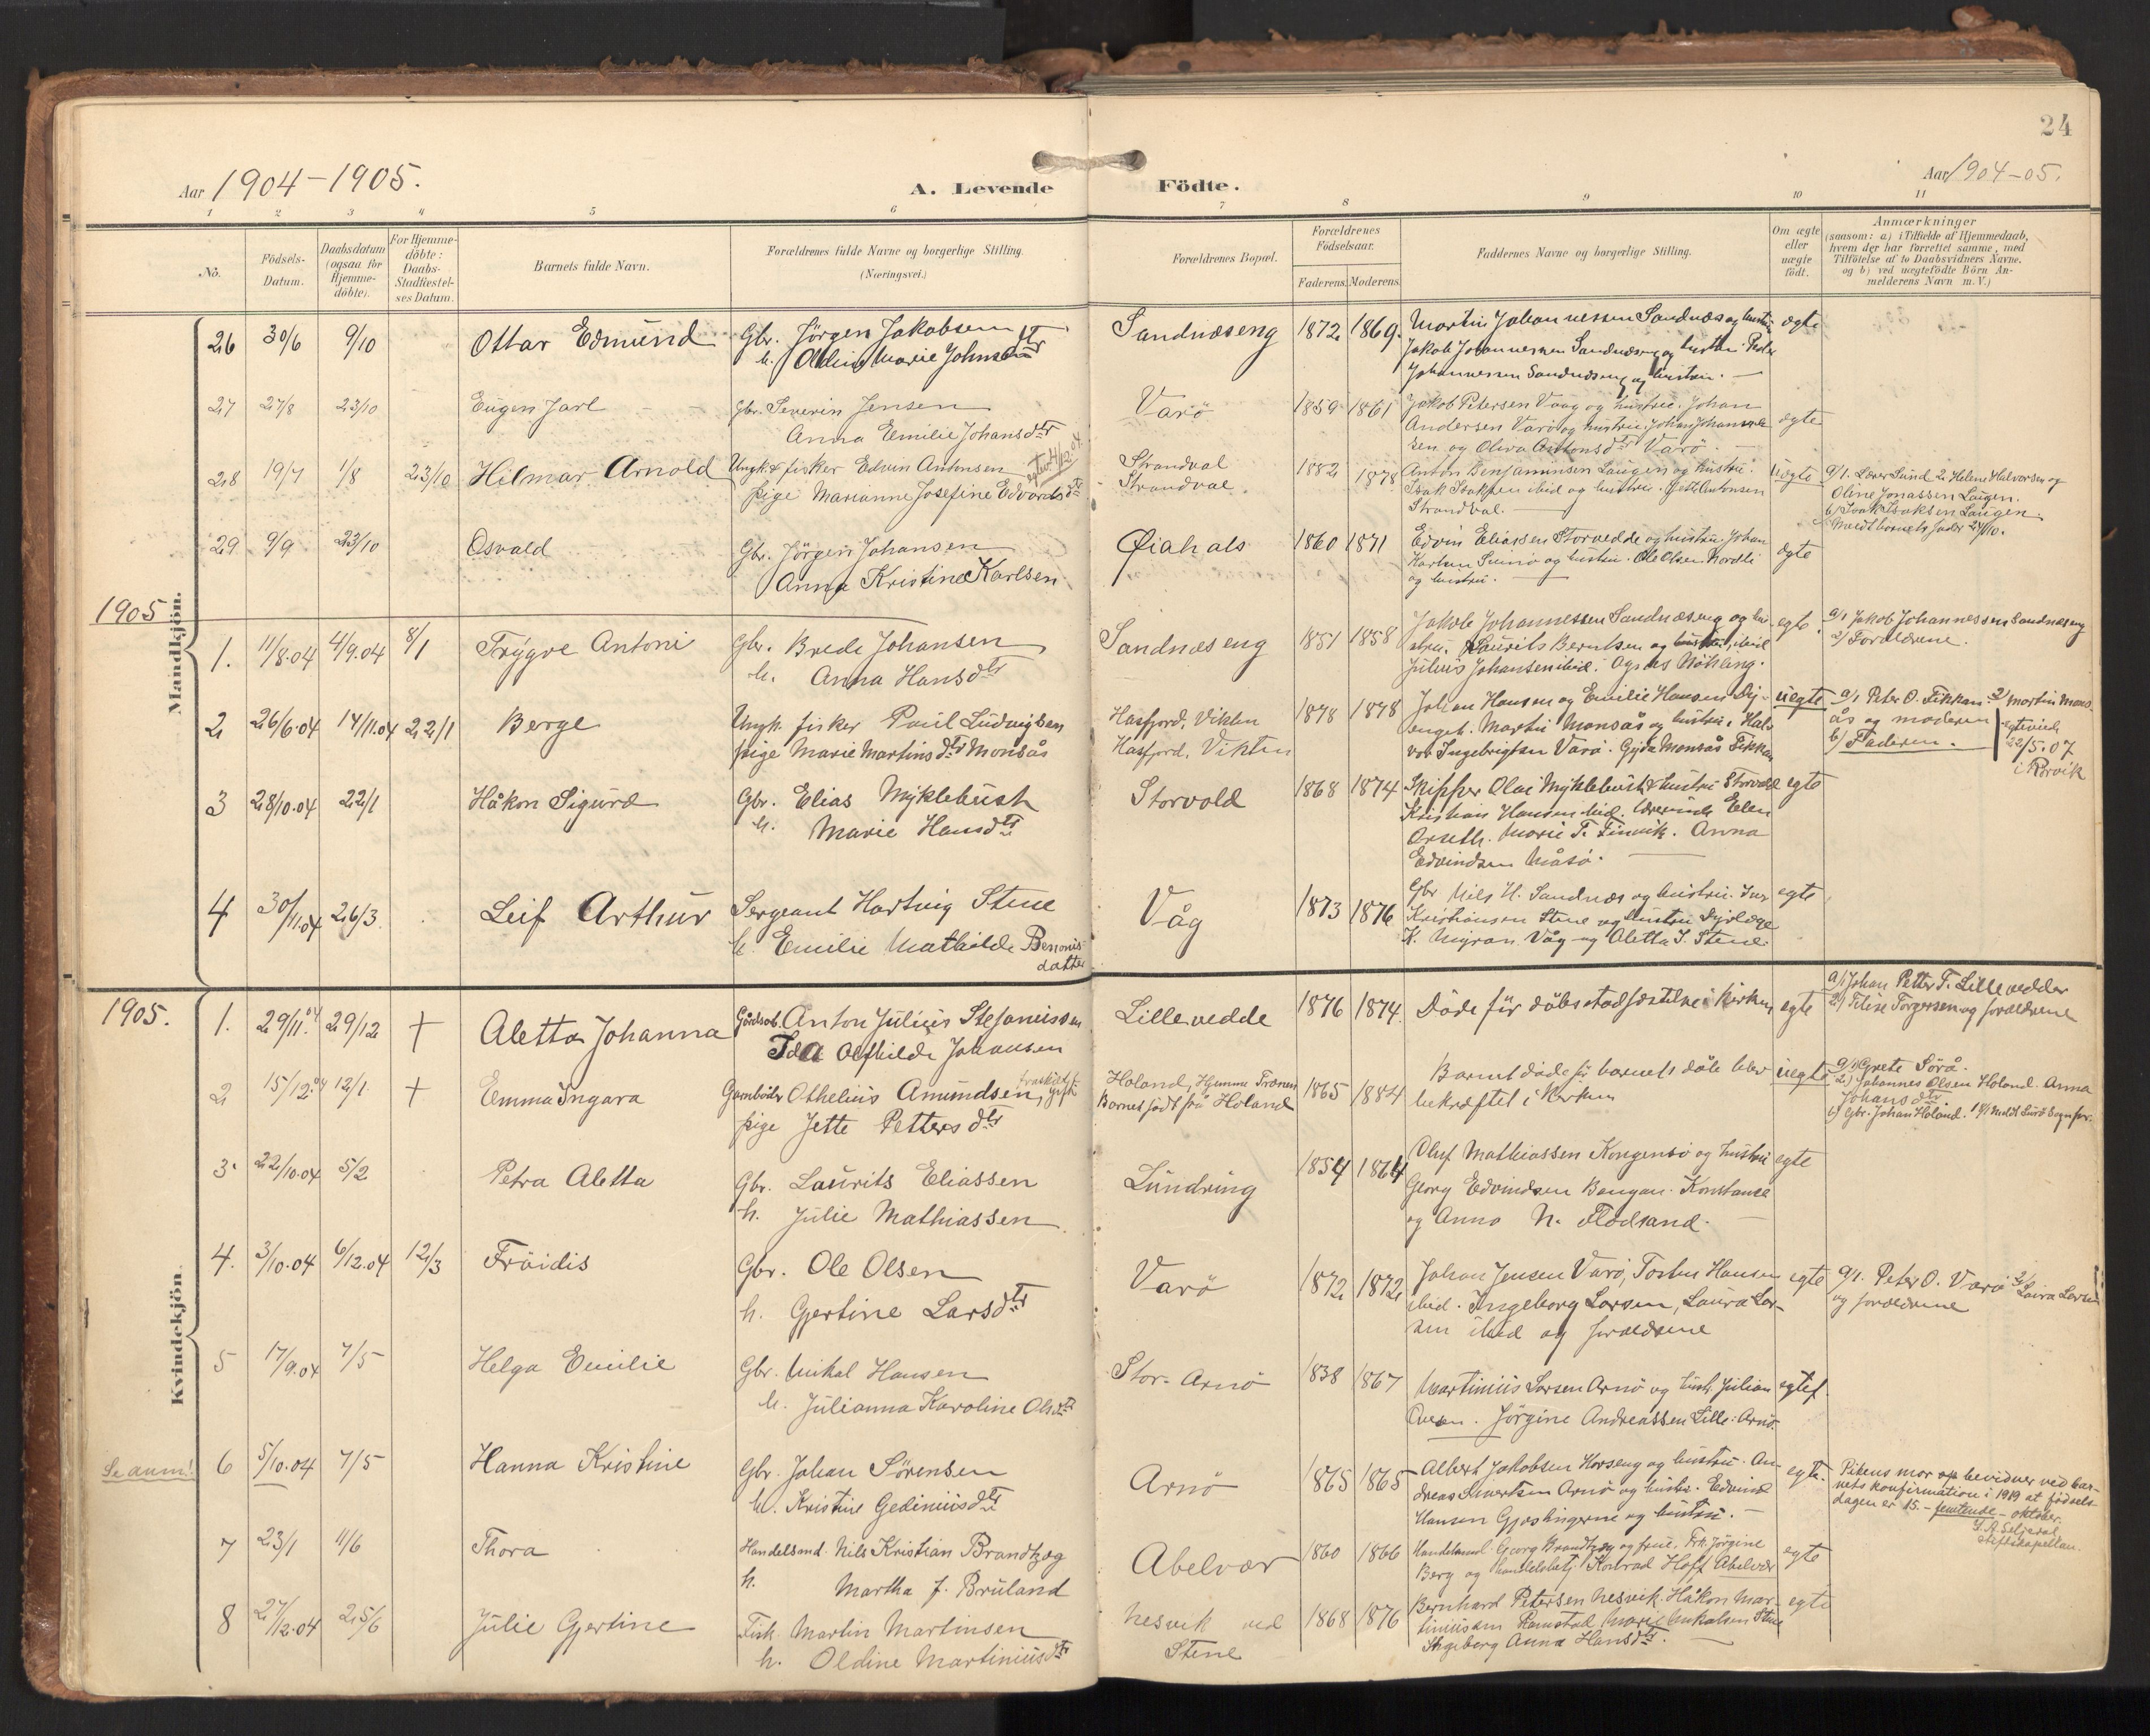 24
Aar 1904-1905.
A. Levende Födte.
Aar 1904-05.
1 2 3 4 5 6 7 8 9 10 11
No.
Födsels-
Datum.
Daabsdatum
(ogsaa for
Hjemme-
döbte).
For Hjemme-
döbte:
Daabs-
Stadfæstel-
ses Datum.
Barnets fulde Navn.
Forældrenes fulde Navne og borgerlige Stilling.
(Næringsvei.)
Forældrenes Bopæl.
Forældrenes
Födselsaar.
Faderens. Moderens.
Faddernes Navne og borgerlige Stilling.
Om ægte
eller
uægte
födt.
Anmærkninger
(saasom: a) i Tilfælde af Hjemmedaab,
hvem der har forrettet samme, med
Tilföielse af to Daabsvidners Navne.
og b) ved uægtefödte Börn An-
melderens Navn m. V.)
Mandkjön.
26 30/6 9/10 Ottar Edmund
Gbr. Jörgen Jakobsen
h. Oline Marie Johnsdtr
Sandnæseng 1872 1869.
Martin Johannessen Sandnæs og hustru
Jakob Johannessen Sandnæseng og hustru. Peder
Johannessen Sandnæseng og hustru.
ægte
27 27/8 23/10 Eugen Jarl
Gbr. Severin Jensen
Anna Emilie Johansdtr
Varö 1859 1861
Jakob Petersen Vaag og hustru. Johan
Andersen Varö og hustru. Johan
sen og Oliva Antonsdtr Varö
ægte
28 19/7 1/8 23/10 Hilmar Arnold
Ungk. fisker Edvin Antonsen
pige Marianne Josefine Edvardsdtr
Strandval
Strandval
1882 1878
Anton Benjaminsen Laugen og hustru.
Isak Isaksen ibid og hustru. Antonsen
Strandval.
uægte
a/1. Laver Sund 2. Helene Halvorsen og
Oline Jonassen Laugen.
b/ Isak Isaksen Laugen.
Meldt barnets fader 24/10.
29 9/9 23/10 Osvald
Gbr. Jörgen Johansen
Anna Kristine Karlsen
Øiahals 1860 1871
Edvin Eliassen Storvedde og hustru. Johan
Karlsen og hustru. Ole Olsen Nordli
og hustru.
ægte
1905
1. 11/8.04 4/9.04 8/1 Trygve Antoni
Gbr. Brede Johansen
h. Anna Hansdtr
Sandnæseng 1851 1858
Jakob Johannessen Sandnæseng og hu-
stru. Laurits Berntsen og hustru, ibid
Julius Johansen ibid. Agnes
egte.
a/1 Jakob Johannessen Sandnæseng
2/ Forældrene.
2 26/6.04 14/11.04 22/1 Berge
Ungk. fisker Paul Ludvigsen
pige Marie Martinsdtr Monsås
Hasfjord, Vikten
Hasfjord, Vikten
1878 1878
Johan Hansen og Emilie Hansen Dy-
enget. Martin Monsås og hustru. Hal-
vor Ingebrigtsen Varö. Gyda Monsås Fikkan
uegte
a/1 Peter O. Fikkan. 2/ Martin Mons-
ås og moderen
b/ Faderen.
egteviede
22/5.07
i Rörvik
3 28/10.04 22/1 Håkon Sigurd
Gbr. Elias Myklebust
h. Marie Hansdtr
Storvold 1868 1874
Skipper Olai Myklebust & hustru Storvold
Kristian Hansen ibid. Ellen
Orseth. Marie T. Finvik. Anna
Edvindsen Måsö.
egte
4 30/11.04 26/3. Leif Arthur
Sergeant Hartvig Stene
h. Emilie Mathilde Benonis-
datter
Våg 1873 1876
Gbr Nils H. Sandnæs og hustru. Ivar
Kristiansen Stene og hustru Dyrlæge
K. Vågran Våg og Aletta J. Stene.
egte
1905.
Kvindekjön.
1. 29/11.04 29/12 † Aletta Johanna
Gårdsb. Anton Julius Stefanussen
Ida Alfhilde Johansen
Lillevedde 1876 1874.
Döde för dåbsstadfæstelse i kirken
egte
a/1 Johan Petter F. Lillevedde
2/ Feline Torgersen og forældrene
2 15/12.04 12/1. † Emma Ingara
Gamböder Othelius Amundsen, fraskildt, gift
pige Jette Pettersdtr
Holand, Hjemme Trænen
Barnet födt på Holand
1865 1884
Barnet döde för barnets dåb blev
bekræftet i kirken
uegte
a/1 Grete Sörå.
2/ Johannes Olsen Holand. Anna
Johansdtr
b/ Gbr. Johan Holand.
3. 22/10.04 5/2 Petra Aletta
Gbr. Laurits Eliassen
h. Julie Mathiassen
Lundring 1854 1864
Oluf Mathiassen Kongensö og hustru
Georg Edvindsen Bangan. Konstance
og Anna N. Flödsand.
egte
4. 3/10.04 6/12.04 12/3 Fröidis
Gbr. Ole Olsen
h. Gjertine Larsdtr
Varö 1872 1872
Johan Jensen Varö, Torber Hansen
ibid. Ingeborg Larsen, Laura Lar-
sen ibid og forældrene
egte
a/1. Peter O. Varö 2/ Laura Larsen
og forældrene
5 17/9.04 7/5 Helga Emilie
Gbr. Mikal Hansen
h. Julianna Karoline Olsdtr
Stor-Arnö 1838 1867
Martinius Larsen Arnö og hust. Julian
Olsen. Jörgine Andreassen Lille-Arnö.
egtef.
Se anm!
6 5/10.04 7/5 Hanna Kristine
Gbr. Johan Sörensen
h. Kristine Gediniusdtr
Arnö 1865 1865
Albert Jakobsen Horseng og hustru. An-
dreas Sivertsen Arnö og hustru. Edvind
Hansen Gjæslingerne og hustru.
egte.
Pikens mor bevidner ved bar-
nets konfirmation i 1919 at födsels-
dagen er 15. - femtende - oktober.
7 23/1 11/6 Thora
Handelsmd. Nils Kristian Brandtzæg
h. Martha J. Brüland
Abelvær 1860 1866
Handelsmd. Georg Brandtzæg og frue. Frk. Jörgine
Berg og handelsbetj. Konrad Hoff Abelvær
egte
8 27/12.04 25/6 Julie Gjertine
Fisk. Martin Martinsen
h. Oldine Martiniusdtr
Nesvik ved
Stene
1868 1876
Bernhard Petersen Nesvik. Håkon Mar-
tiniussen Ramstad Marie Mikalsen Stene
Ingeborg Anna Hansdtr.
egte